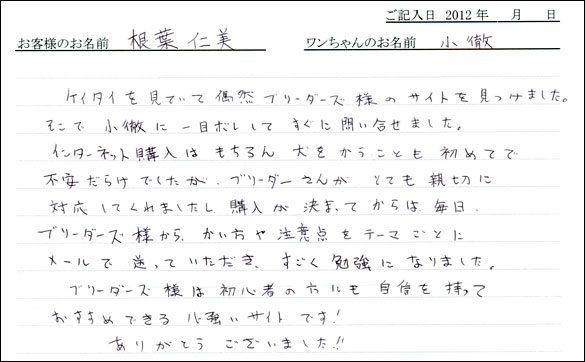 ご記入日 2012年 月 日
お客様のお名前 根葉 仁美 ワンちゃんのお名前 小徹
ケイタイを見ていて偶然ブリーダーズ様のサイトを見つけました。
そこで小徹に一目ボレしてすぐに問い合せました。
インターネット購入はもちろん犬をかうことも初めてで
不安だらけでしたが、ブリーダーさんがとても親切に
対応してくれましたし購入が決まってからは毎日、
ブリーダーズ様から、かい方や注意点をテーマごとに
メールで送っていただき、すごく勉強になりました。
ブリーダーズ様は初心者の方にも自信を持って
おすすめできる心強いサイトです!
ありがとうございました!!